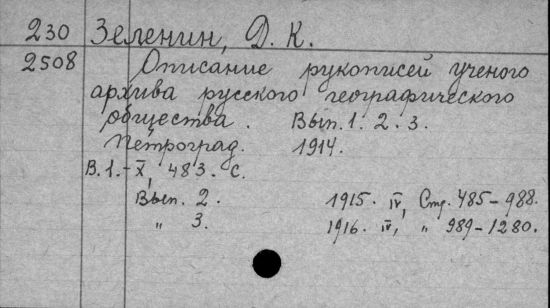 230 Зеленин, Д. К.
2508 Описание рукописей ученого
архива русского географического
общества. Вып. 1. 2. 3.
Петроград. 1914.
В. 1.- X, 483. с.
Вып. 2. 1915. IV, Стр. 485-988.
" 3. 1916. IV, " 989-1280.